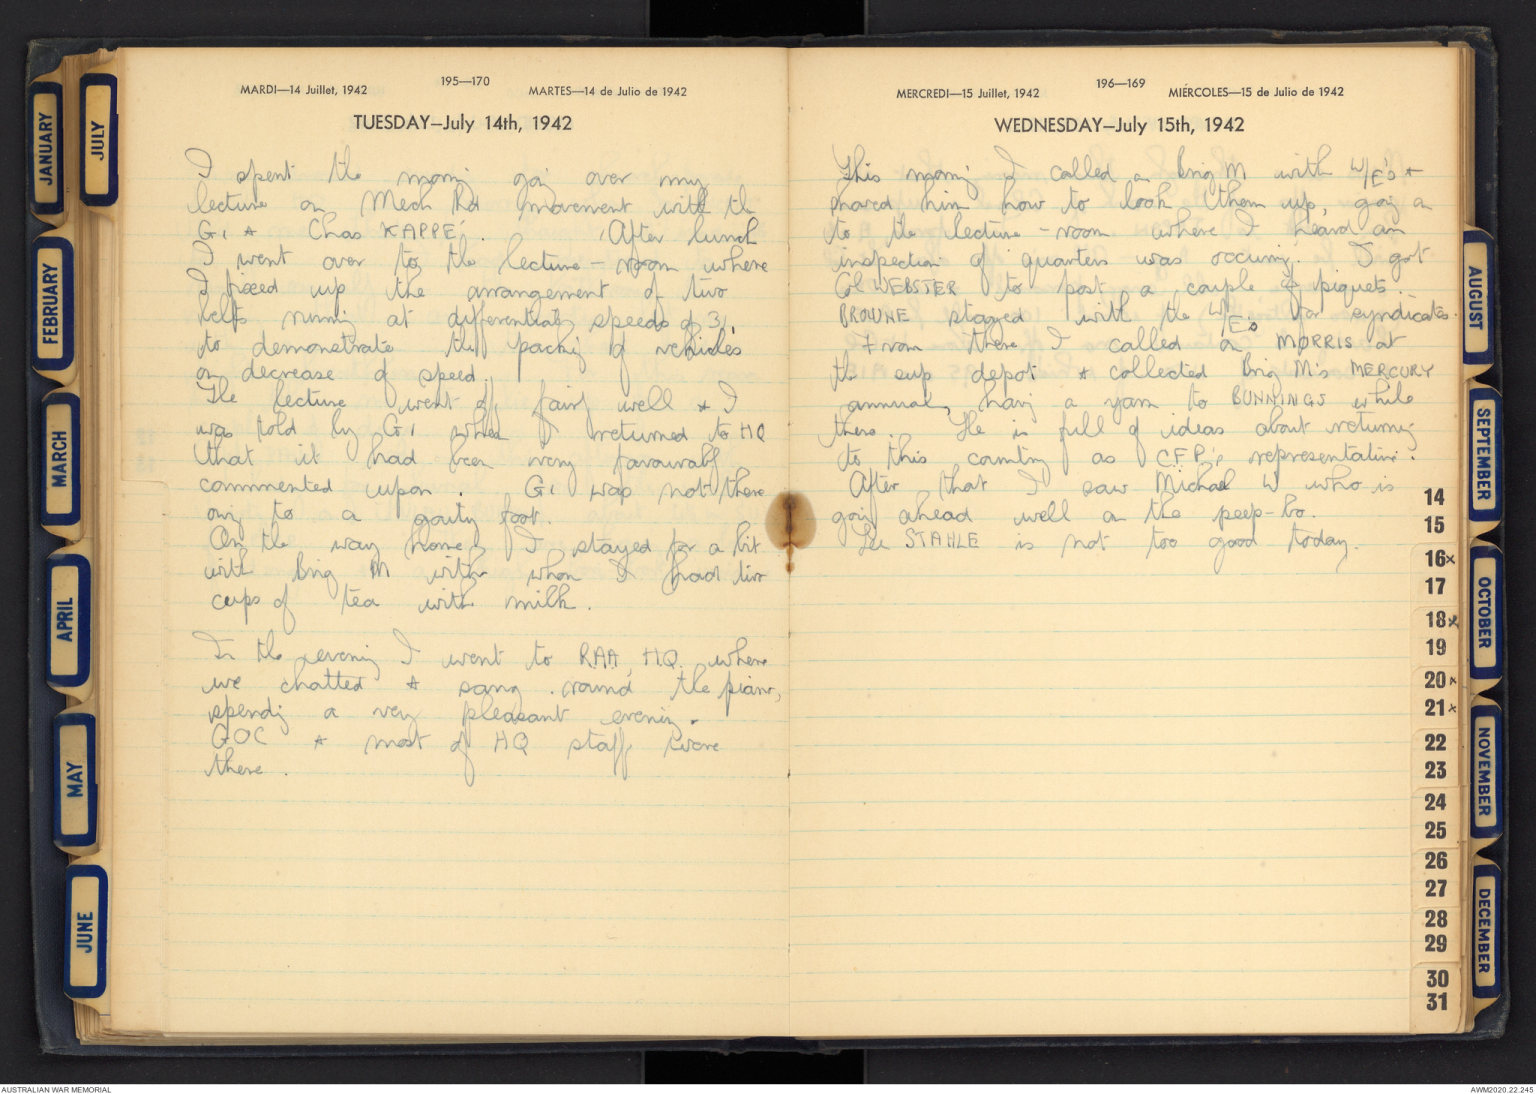 MARDI—14 Juillet, 1942
195—170
MARTES—14 de Julio de 1942
TUESDAY—July 14th, 1942
I spent the morning going over my
lecture on Mech Rd Movement with the
G1 & Chas KAPPE. After lunch
I went over to the lecture-room where
I fixed up the arrangement of two
belts running at different speeds of 31,
to demonstrate the packing of vehicles
on decrease of speed.
The lecture went off fairly well & I
was told by G1 when I returned to HQ
that it had been very favourably
commented upon. G1 was not there
owing to a gouty foot.
On the way home I stayed for a bit
with Brig M with whom I had two
cups of tea with milk.
In the evening I went to RAA HQ where
we chatted & sang round the piano,
spending a very pleasant evening.
GOC & most of HQ staff were
there.
MERCREDI—15 Juillet, 1942
196—169
MIÉRCOLES—15 de Julio de 1942
WEDNESDAY—July 15th, 1942
This morning I called on Brig M with W/E's &
showed him how to look them up, going on
to the lecture-room where I heard an
inspection of quarters was occuring. I got
Col WEBSTER to post a couple of piquets.
BROWNE stayed with the W/Es for syndicates.
From there I called on MORRIS at
the sup depot & collected Brig M's MERCURY
annual, having a yarn to BUNNINGS while
there. He is full of ideas about returning
to this country as C.F.P.'s representative.
After that I saw Michael W who is
going ahead well on the peep-bo.
Lee STAHLE is not too good today.
JANUARY
FEBRUARY
MARCH
APRIL
MAY
JUNE
JULY
AUGUST
SEPTEMBER
OCTOBER
NOVEMBER
DECEMBER
14
15
16x
17
18x
19
20x
21x
22
23
24
25
26
27
28
29
30
31
AUSTRALIAN WAR MEMORIAL
AWM2020.22.245